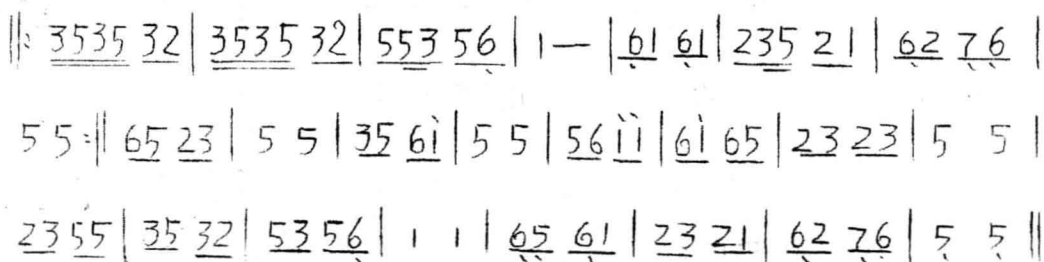 ‖: 3535 32 | 3535 32 | 553 56̣ | 1 — | 6̣1 6̣1 | 235 21 | 6̣2 7̣6̣ |
5 5 :‖ 65 23 | 5 5 | 35 6i̇ | 5 5 | 56 i̇i̇ | 6i̇ 65 | 23 23 | 5 5 |
23 55 | 35 32 | 53 56̣ | 1 1 | 6̣5̣ 6̣1 | 23 21 | 6̣2 7̣6̣ | 5̣ 5̣ ‖